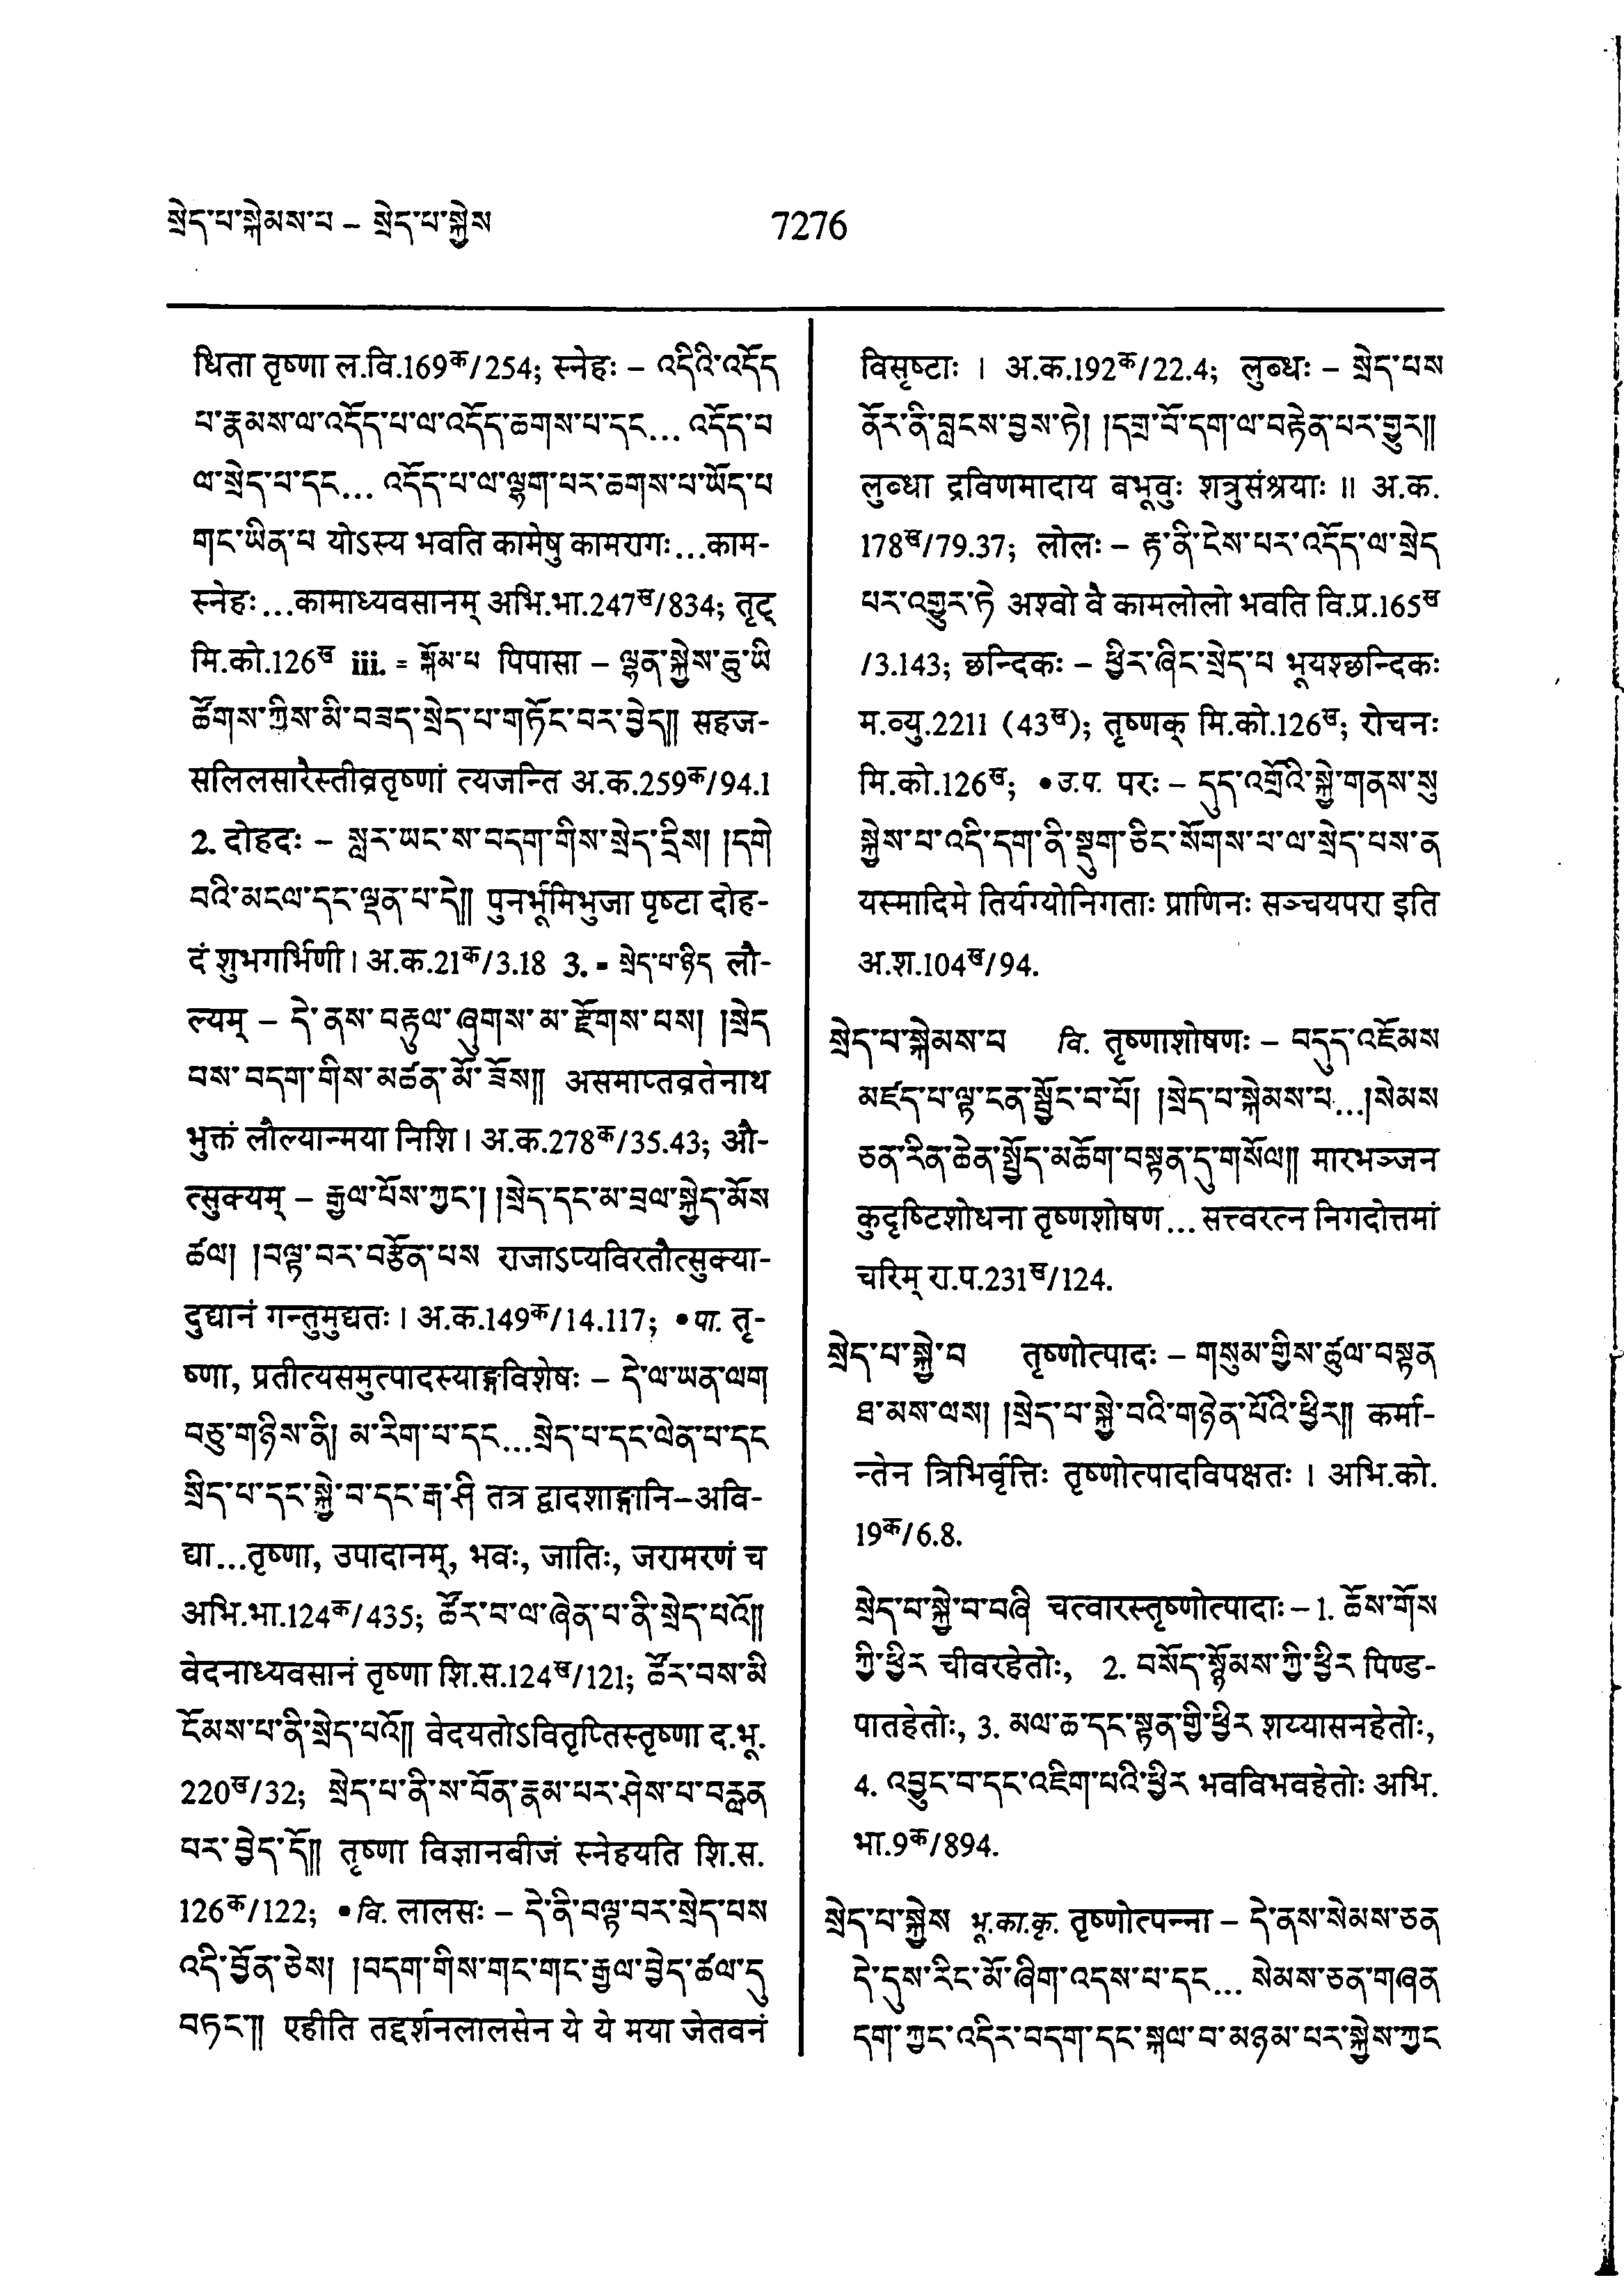 སྲེད་པ་སྐེམས་པ – སྲེད་པ་སྐྱེས
7276
धिता तृष्णा ल.वि.169क/254; स्नेहः – འདིའི་འདོད
པ་རྣམས་ལ་འདོད་པ་ལ་འདོད་ཆགས་པ་དང... འདོད་པ
ལ་སྲེད་པ་དང... འདོད་པ་ལ་ལྷག་པར་ཆགས་པ་ཡོད་པ
གང་ཡིན་པ योऽस्य भवति कामेषु कामरागः...काम-
स्नेहः...कामाध्यवसानम् अभि.भा.247ख/834; तृट्
मि.को.126ख iii. = སྐོམ་པ पिपासा – ལྷན་སྐྱེས་ཆུ་ཡི
ཚོགས་ཀྱིས་མི་བཟད་སྲེད་པ་གཏོང་བར་བྱེད།། सहज-
सलिलसारैस्तीव्रतृष्णां त्यजन्ति अ.क.259क/94.1
2. दोहदः – སླར་ཡང་ས་བདག་གིས་སྲེད་དྲིས། །དགེ
བའི་མངལ་དང་ལྡན་པ་དེ།། पुनर्भूमिभुजा पृष्टा दोह-
दं शुभगर्भिणी। अ.क.21क/3.18 3. = སྲེད་པ་ཉིད लौ-
ल्यम् – དེ་ནས་བརྟུལ་ཞུགས་མ་རྫོགས་པས། །སྲེད
པས་བདག་གིས་མཚན་མོ་ཟོས།། असमाप्तव्रतेनाथ
भुक्तं लौल्यान्मया निशि। अ.क.278क/35.43; औ-
त्सुक्यम् – རྒྱལ་པོས་ཀྱང་། །སྲེད་དང་མ་བྲལ་སྐྱེད་མོས
ཚལ། །བལྟ་བར་བརྩོན་པས राजाऽप्यविरतौत्सुक्या-
दुद्यानं गन्तुमुद्यतः। अ.क.149क/14.117; • पा. तृ-
ष्णा, प्रतीत्यसमुत्पादस्याङ्गविशेषः – དེ་ལ་ཡན་ལག
བཅུ་གཉིས་ནི། མ་རིག་པ་དང...སྲེད་པ་དང་ལེན་པ་དང
སྲིད་པ་དང་སྐྱེ་བ་དང་རྒ་ཤི तत्र द्वादशाङ्गानि–अवि-
द्या...तृष्णा, उपादानम्, भवः, जातिः, जरामरणं च
अभि.भा.124क/435; ཚོར་བ་ལ་ཞེན་པ་ནི་སྲེད་པའོ།།
वेदनाध्यवसानं तृष्णा शि.स.124ख/121; ཚོར་བས་མི
ངོམས་པ་ནི་སྲེད་པའོ།། वेदयतोऽवितृप्तिस्तृष्णा द.भू.
220ख/32; སྲེད་པ་ནི་ས་བོན་རྣམ་པར་ཤེས་པ་བརླན
པར་བྱེད་དོ།། तृष्णा विज्ञानबीजं स्नेहयति शि.स.
126क/122; • वि. लालसः – དེ་ནི་བལྟ་བར་སྲེད་པས
འདི་བྱོན་ཅེས། །བདག་གིས་གང་གང་རྒྱལ་བྱེད་ཚལ་དུ
བཏང་།། एहीति तद्दर्शनलालसेन ये ये मया जेतवनं
विसृष्टाः। अ.क.192क/22.4; लुब्धः – སྲེད་པས
ནོར་ནི་བླངས་བྱས་ཏེ། །དགྲ་བོ་དག་ལ་བརྟེན་པར་གྱུར།།
लुब्धा द्रविणमादाय बभूवुः शत्रुसंश्रयाः॥ अ.क.
178ख/79.37; लोलः – རྟ་ནི་ངེས་པར་འདོད་ལ་སྲེད
པར་འགྱུར་ཏེ अश्वो वै कामलोलो भवति वि.प्र.165ख
/3.143; छन्दिकः – ཕྱིར་ཞིང་སྲེད་པ भूयश्छन्दिकः
म.व्यु.2211 (43ख); तृष्णक् मि.को.126ख; रोचनः
मि.को.126ख; • उ.प. परः – དུད་འགྲོའི་སྐྱེ་གནས་སུ
སྐྱེས་པ་འདི་དག་ནི་སྡུག་ཅིང་སོགས་པ་ལ་སྲེད་པས་ན
यस्मादिमे तिर्यग्योनिगताः प्राणिनः सञ्चयपरा इति
अ.श.104ख/94.
སྲེད་པ་སྐེམས་པ वि. तृष्णाशोषणः – བདུད་འཇོམས
མཛད་པ་ལྟ་ངན་སྦྱོང་བ་པོ། །སྲེད་པ་སྐེམས་པ...།སེམས
ཅན་རིན་ཆེན་སྤྱོད་མཆོག་བསྟན་དུ་གསོལ།། मारभञ्जन
कुदृष्टिशोधना तृष्णशोषण... सत्त्वरत्न निगदोत्तमां
चरिम् रा.प.231ख/124.
སྲེད་པ་སྐྱེ་བ तृष्णोत्पादः – གསུམ་གྱིས་ཚུལ་བསྟན
ཐ་མས་ལས། །སྲེད་པ་སྐྱེ་བའི་གཉེན་པོའི་ཕྱིར།། कर्मा-
न्तेन त्रिभिर्वृत्तिः तृष्णोत्पादविपक्षतः। अभि.को.
19क/6.8.
སྲེད་པ་སྐྱེ་བ་བཞི चत्वारस्तृष्णोत्पादाः – 1. ཆོས་གོས
ཀྱི་ཕྱིར चीवरहेतोः, 2. བསོད་སྙོམས་ཀྱི་ཕྱིར पिण्ड-
पातहेतोः, 3. མལ་ཆ་དང་སྟན་གྱི་ཕྱིར शय्यासनहेतोः,
4. འབྱུང་བ་དང་འཇིག་པའི་ཕྱིར भवविभवहेतोः अभि.
भा.9क/894.
སྲེད་པ་སྐྱེས भू.का.कृ. तृष्णोत्पन्ना – དེ་ནས་སེམས་ཅན
དེ་དུས་རིང་མོ་ཞིག་འདས་པ་དང... སེམས་ཅན་གཞན
དག་ཀྱང་འདིར་བདག་དང་སྐལ་བ་མཉམ་པར་སྐྱེས་ཀྱང